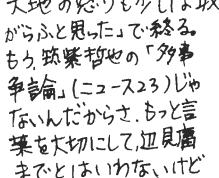 大地の怒りも少しは収
がらふと思った」で終る。
もう、筑紫哲也の「多事
争論」(ニュース23)じゃ
ないんだからさ、もっと言
葉を大切にして、辺見庸
までとはいわないけど